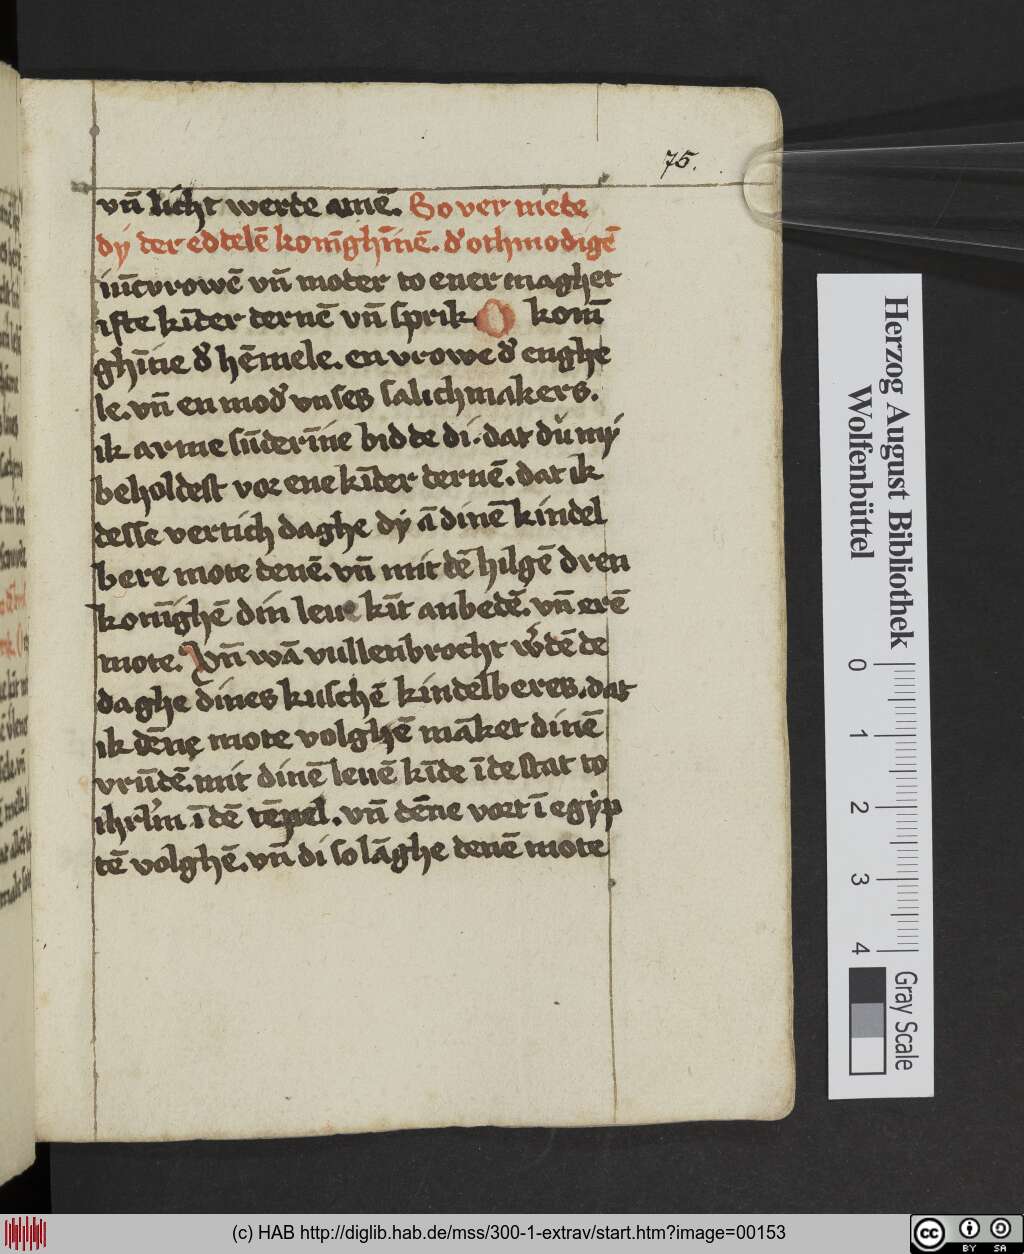 75.
vn̄ licht werde amē. So ver miede
dÿ der eddelē konīghīnē. d' othmodigē
iūcvrowē vn̄ moder to ener maghet
ifte kīder dernē vn̄ sprik O konī
ghīnie d' hēmele. en vrowe d' enghe
le. vn̄ en mod' vnses salichmakers.
ik arme sūderīnie bidde di. dat du mÿ
beholdest vor ene kīder dernē. dat ik
desse vertich daghe dÿ ā dinē kindel
bere mote denē. vn̄ mit dē hilgē dren
konīghē din leue kīt anbedē. vn̄ erē
mote. Vn̄ wā vullenbrocht w'dē de
daghe dines kuschē kindelberes. dat
ik dēne mote volghē māket dinē
vrūdē. mit dinē leuē kīde ī de stat to
ihrl'm ī dē tēpel. vn̄ dēne vort ī egÿp
tē volghē. vn̄ di so lāghe denē mote
Herzog August Bibliothek
Wolfenbüttel
0 1 2 3 4
Gray Scale
(c) HAB http://diglib.hab.de/mss/300-1-extrav/start.htm?image=00153
cc BY SA